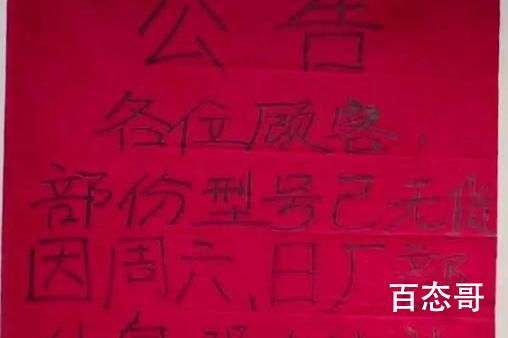 公告
各位顾客,
部份型号己无货
因周六、日厂部
百态哥